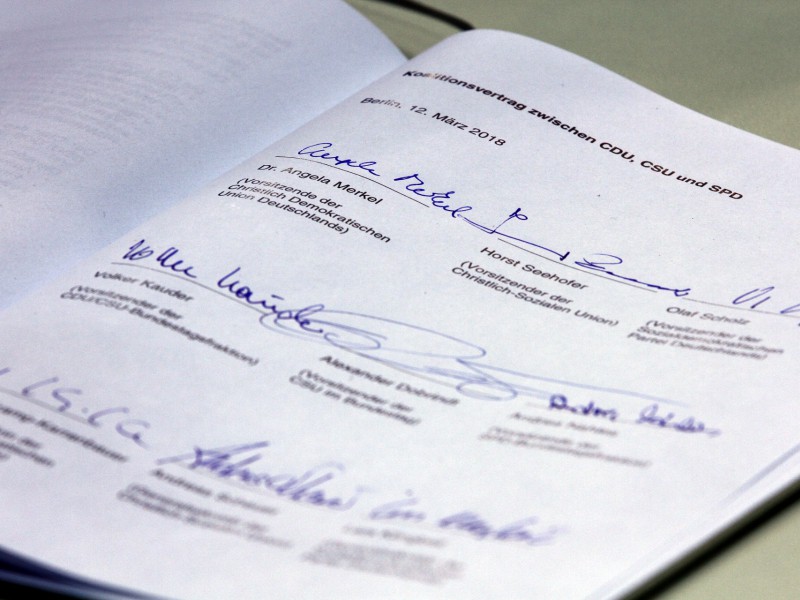 Koalitionsvertrag zwischen CDU, CSU und SPD
Berlin, 12. März 2018
Angela Merkel
Dr. Angela Merkel
(Vorsitzende der
Christlich Demokratischen
Union Deutschlands)
Horst Seehofer
(Vorsitzender der
Christlich-Sozialen Union)
Olaf Scholz
(Vorsitzender der
Sozialdemokratischen
Partei Deutschlands)
Volker Kauder
Volker Kauder
(Vorsitzender der
CDU/CSU-Bundestagsfraktion)
Alexander Dobrindt
(Vorsitzender der
CSU im Bundestag)
Andrea Nahles
Andrea Nahles
(Vorsitzende der
Andreas Scheuer
Lars Klingbeil